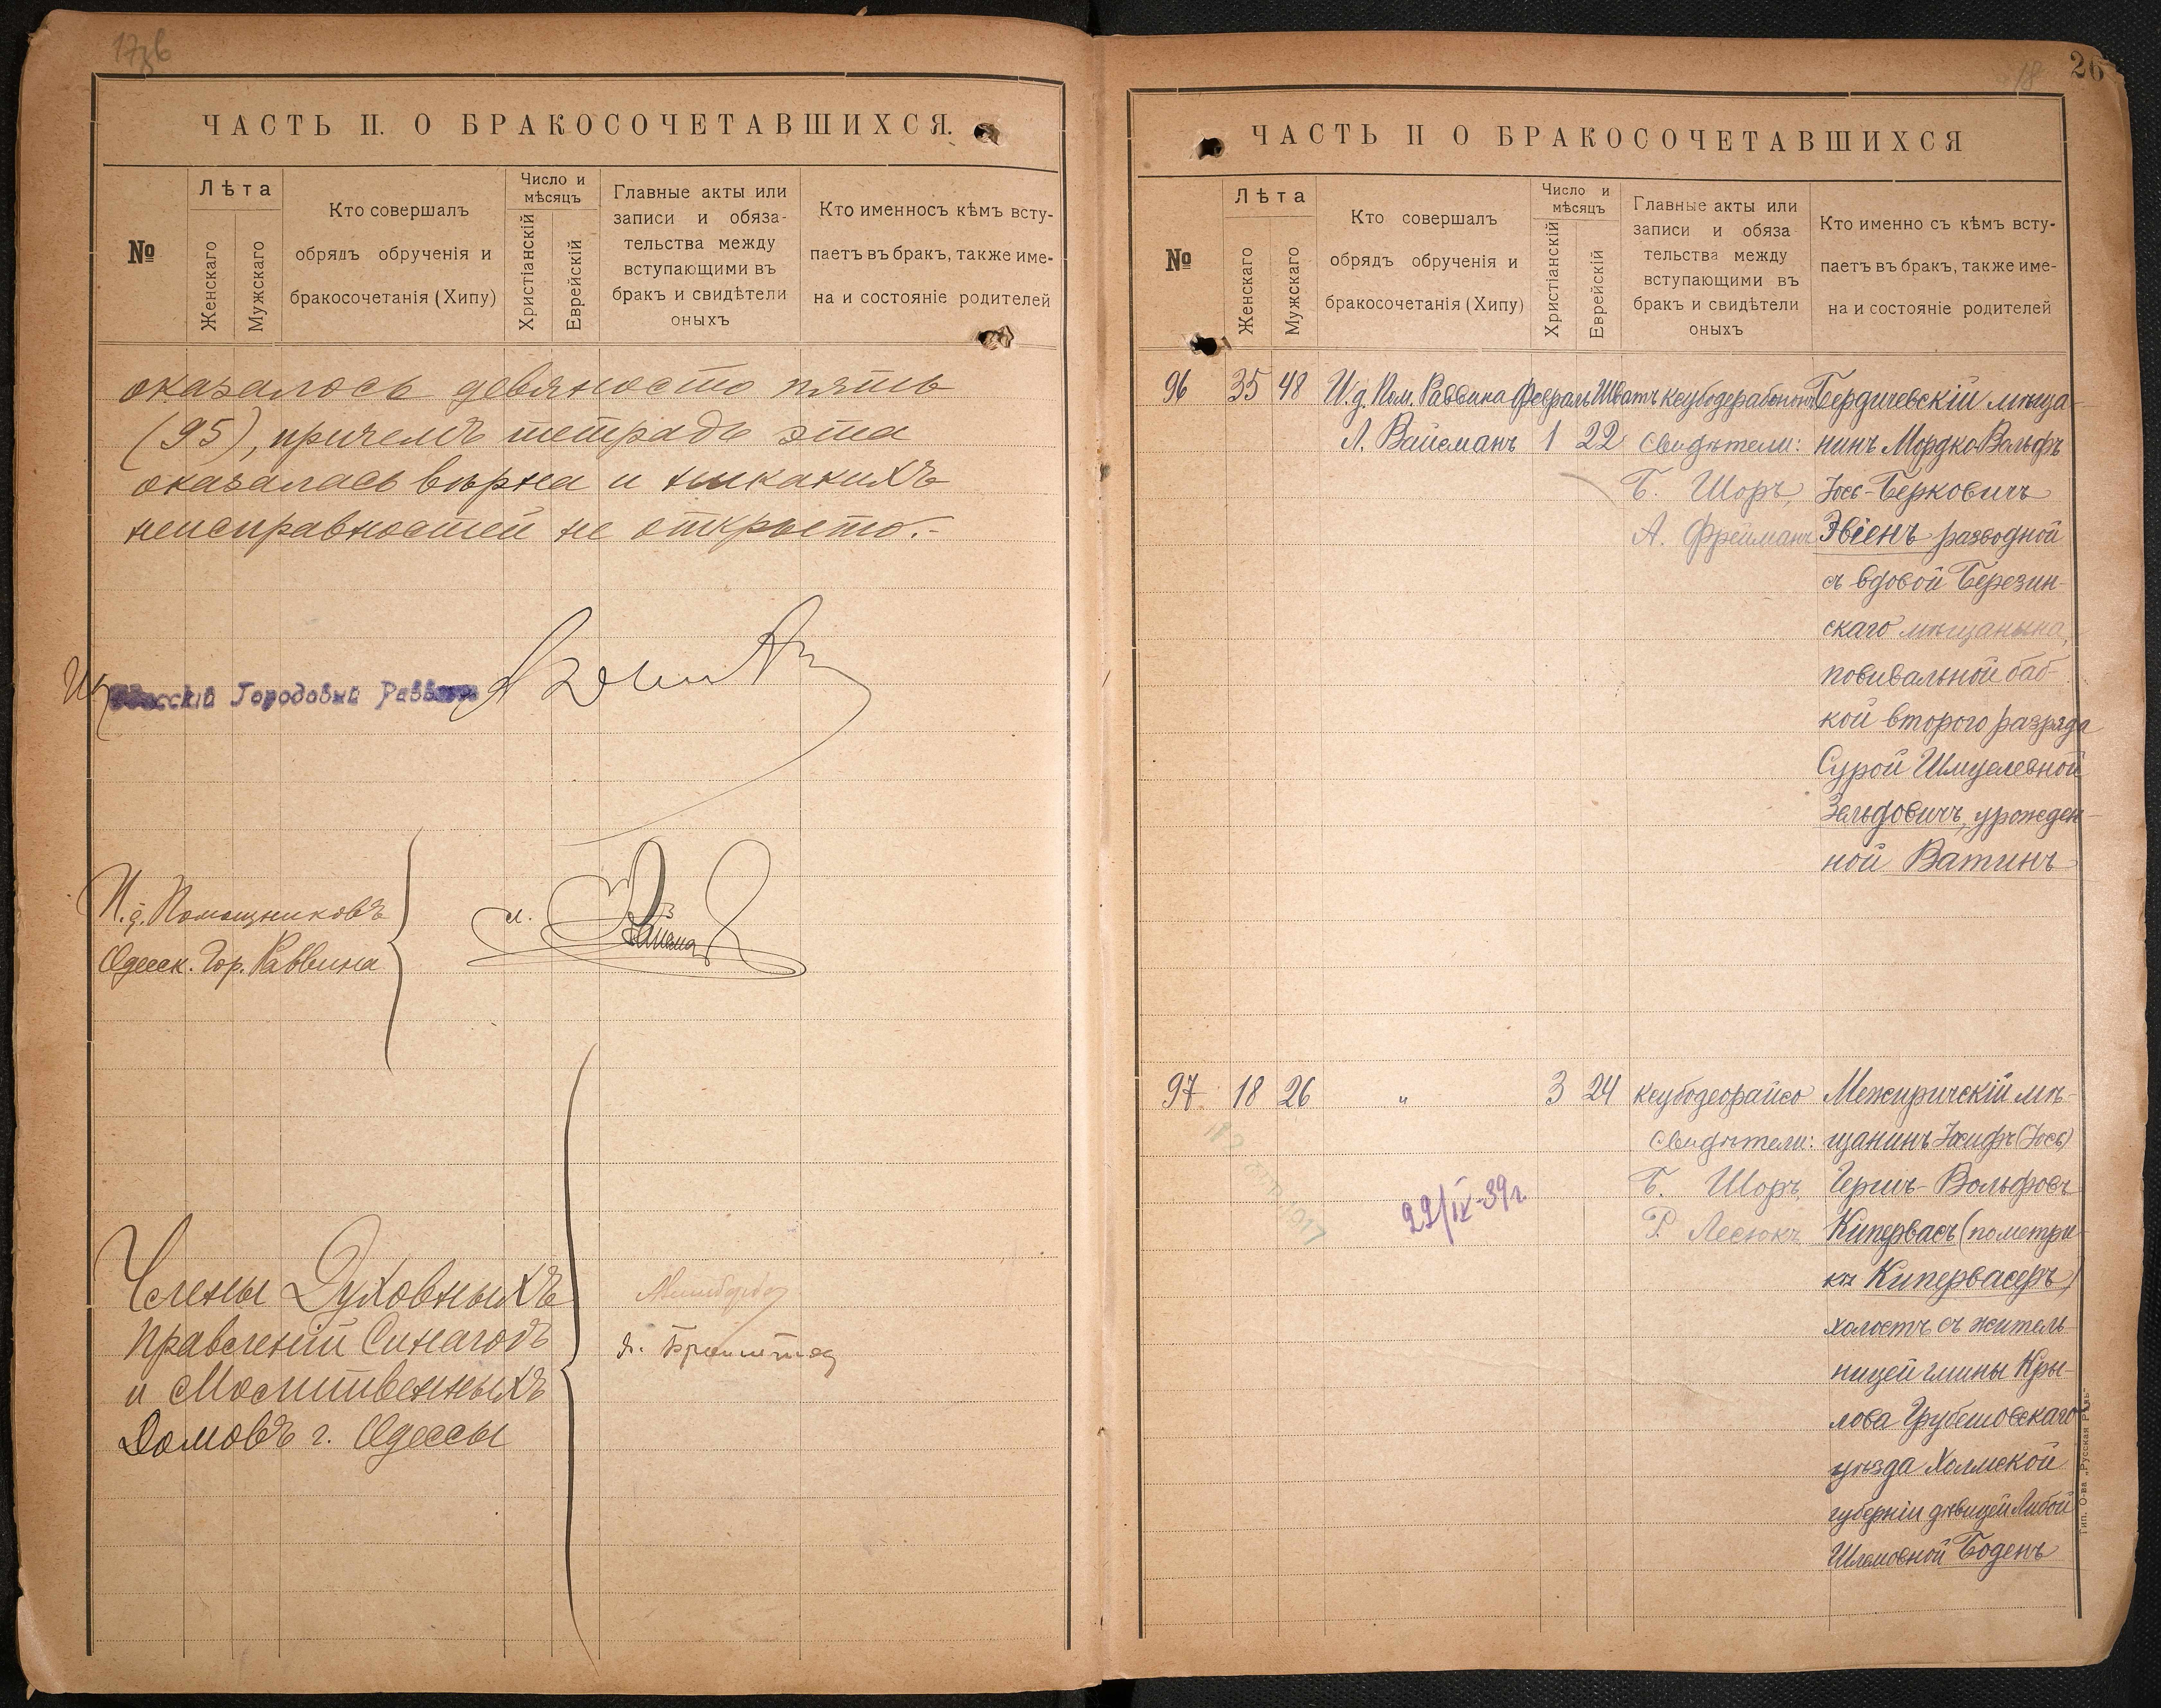 17зв
ЧАСТЬ II. О БРАКОСОЧЕТАВШИХСЯ.
№
Лѣта
Женскаго
Мужскаго
Кто совершалъ
обрядъ обрученія и
бракосочетанія (Хипу)
Число и
мѣсяцъ
Христіанскій
Еврейскій
Главные акты или
записи и обяза-
тельства между
вступающими въ
бракъ и свидѣтели
оныхъ
Кто именносъ кѣмъ всту-
паетъ въ бракъ, также име-
на и состояніе родителей
оказалось девяносто пять
(95), причемъ тетрадь эта
оказалась вѣрна и никакихъ
неисправностей не открыто.-
Одесскій Городовый Раввинъ
И.д. Помощниковъ
Одесск. Гор. Раввина
Л. Вайсман
Члены Духовныхъ
Правленій Синагогъ
и Молитвенныхъ
Домовъ г. Одессы
18
26
ЧАСТЬ II О БРАКОСОЧЕТАВШИХСЯ
№
Лѣта
Женскаго
Мужскаго
Кто совершалъ
обрядъ обрученія и
бракосочетанія (Хипу)
Число и
мѣсяцъ
Христіанскій
Еврейскій
Главные акты или
записи и обяза
тельства между
вступающими въ
бракъ и свидѣтели
оныхъ
Кто именно съ кѣмъ всту-
паетъ въ бракъ, также име-
на и состояніе родителей
96 35 48
И.д. Пом. Раввина
Л. Вайсманъ
Февраль Шватъ
1 22
Свидѣтели:
Б. Шоръ,
А. Фрейманъ
Бердичевскій мѣща-
нинъ Мордко Вольфъ
Іось-Берковичъ
Эвіенъ разводной
съ вдовой Березин-
скаго мѣщанина,
повивальной баб-
кой второго разряда
Сурой Шмулевной
Зельдовичъ, урожден-
ной Ватинъ
97 18 26
"
3 24
ксубодеорайсо
Свидѣтели:
Б. Шоръ,
Р. Лесюкъ
Межиричскій мѣ-
щанинъ Іосифъ (Іось)
Герш-Вольфовъ
Кипервасъ (по метри-
кѣ Кипервасеръ)
холостъ съ житель-
ницей гмины Кры-
лова Грубешовскаго
уѣзда Холмской
губерніи дѣвицей Либой
Шлемовной Боденъ
22/IX-39г.
Тип. О-ва „Русская Рѣчь“